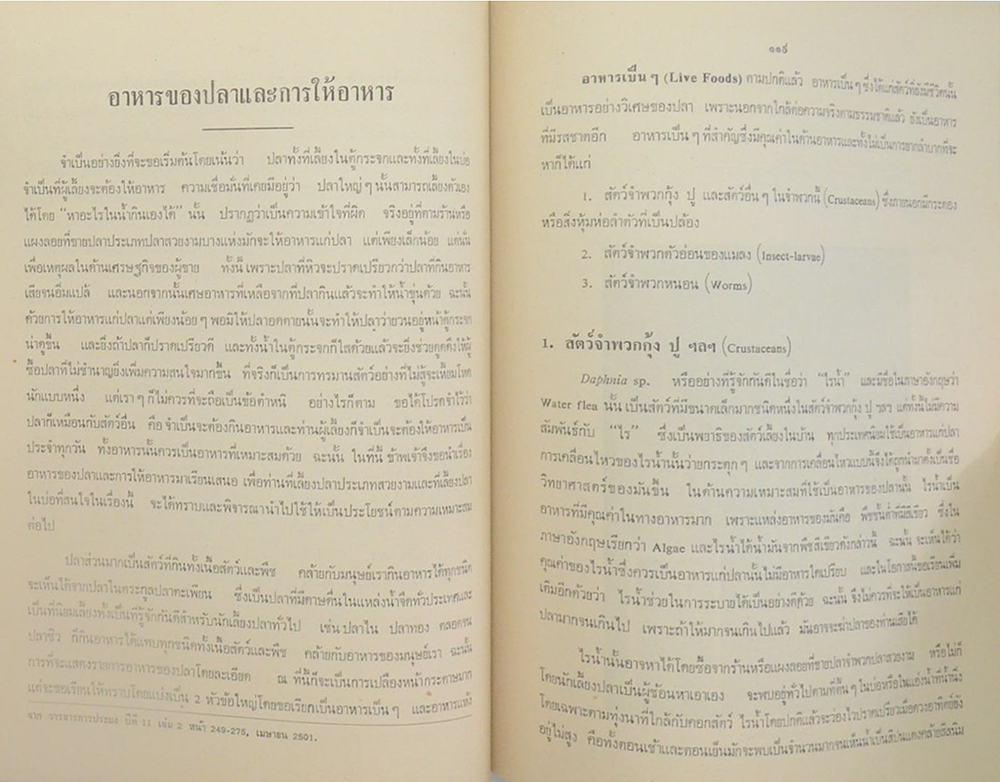 อาหารของปลาและการให้อาหาร
จำเป็นอย่างยิ่งที่จะขอเริ่มต้นโดยเน้นว่า ปลาทั้งที่เลี้ยงในตู้กระจกและทั้งที่เลี้ยงในบ่อ
จำเป็นที่ผู้เลี้ยงจะต้องให้อาหาร ความเชื่อมั่นที่เคยมีอยู่ว่า ปลาใหญ่ ๆ นั้นสามารถเลี้ยงตัวเอง
ได้โดย “หาอะไรในน้ำกินเองได้” นั้น ปรากฏว่าเป็นความเข้าใจที่ผิด จริงอยู่ที่ตามร้านหรือ
แผงลอยที่ขายปลาประเภทปลาสวยงามบางแห่งมักจะให้อาหารแก่ปลา แต่เพียงเล็กน้อย แต่นั่น
เพื่อเหตุผลในด้านเศรษฐกิจของผู้ขาย ทั้งนี้เพราะปลาที่หิวจะปราดเปรียวกว่าปลาที่กินอาหาร
เสียจนอิ่มแปล้ และนอกจากนั้นเศษอาหารที่เหลือจากที่ปลากินแล้วจะทำให้น้ำขุ่นด้วย ฉะนั้น
ด้วยการให้อาหารแก่ปลาแต่เพียงน้อย ๆ พอมิให้ปลาอดตายนั้นจะทำให้ปลาว่ายวนอยู่หน้าตู้กระจก
น่าดูขึ้น และยิ่งถ้าปลาก็ปราดเปรียวดี และทั้งน้ำในตู้กระจกก็ใสด้วยแล้วจะยิ่งช่วยดูดดึงให้ผู้
ซื้อปลาที่ไม่ชำนาญยิ่งเพิ่มความสนใจมากขึ้น ที่จริงก็เป็นการทรมานสัตว์อย่างที่ไม่สู้จะเหี้ยมโหด
นักแบบหนึ่ง แต่เรา ๆ ก็ไม่ควรที่จะถือเป็นข้อตำหนิ อย่างไรก็ตาม ขอได้โปรดจำไว้ว่า
ปลาก็เหมือนกับสัตว์อื่น คือ จำเป็นจะต้องกินอาหารและท่านผู้เลี้ยงก็จำเป็นจะต้องให้อาหารเป็น
ประจำทุกวัน ทั้งอาหารนั้นควรเป็นอาหารที่เหมาะสมด้วย ฉะนั้น ในที่นี้ ข้าพเจ้าจึงขอนำเรื่อง
อาหารของปลาและการให้อาหารมาเรียนเสนอ เพื่อท่านที่เลี้ยงปลาประเภทสวยงามและที่เลี้ยงปลา
ในบ่อที่สนใจในเรื่องนี้ จะได้ทราบและพิจารณานำไปใช้ให้เป็นประโยชน์ตามความเหมาะสม
ต่อไป
ปลาส่วนมากเป็นสัตว์ที่กินทั้งเนื้อสัตว์และพืช คล้ายกับมนุษย์เรากินอาหารได้ทุกชนิด
จะเห็นได้จากปลาในตระกูลปลาตะเพียน ซึ่งเป็นปลาที่มีดาษดื่นในแหล่งน้ำจืดทั่วประเทศและ
เป็นที่นิยมเลี้ยงทั้งเป็นที่รู้จักกันดีสำหรับนักเลี้ยงปลาทั่วไป เช่น ปลาไน ปลาทอง ตลอดจน
ปลาซิว ก็กินอาหารได้แทบทุกชนิดทั้งเนื้อสัตว์และพืช คล้ายกับอาหารของมนุษย์เรา ฉะนั้น
การที่จะแสดงรายการอาหารของปลาโดยละเอียด ณ ที่นี้ก็จะเป็นการเปลืองหน้ากระดาษมาก
แต่จะขอเรียนให้ทราบโดยแบ่งเป็น 2 หัวข้อใหญ่โดยขอเรียกเป็นอาหารเป็น ๆ และอาหารแห้ง
จาก วารสารการประมง ปีที่ 11 เล่ม 2 หน้า 249-275, เมษายน 2501.
๑๑๙
อาหารเป็น ๆ (Live Foods) ตามปกติแล้ว อาหารเป็น ๆ ซึ่งได้แก่สัตว์ที่ยังมีชีวิตนั้น
เป็นอาหารอย่างวิเศษของปลา เพราะนอกจากใกล้ต่อความจริงตามธรรมชาติแล้ว ยังเป็นอาหาร
ที่มีรสชาติอีก อาหารเป็น ๆ ที่สำคัญซึ่งมีคุณค่าในด้านอาหารและทั้งไม่เป็นการยากลำบากที่จะ
หาก็ได้แก่
1. สัตว์จำพวกกุ้ง ปู และสัตว์อื่น ๆ ในจำพวกนี้ (Crustaceans) ซึ่งภายนอกมีกระดอง
หรือสิ่งหุ้มห่อลำตัวที่เป็นปล้อง
2. สัตว์จำพวกตัวอ่อนของแมลง (Insect-larvae)
3. สัตว์จำพวกหนอน (Worms)
1. สัตว์จำพวกกุ้ง ปู ฯลฯ (Crustaceans)
Daphnia sp. หรืออย่างที่รู้จักกันดีในชื่อว่า “ไรน้ำ” และมีชื่อในภาษาอังกฤษว่า
Water flea นั้น เป็นสัตว์ที่มีขนาดเล็กมากชนิดหนึ่งในสัตว์จำพวกกุ้ง ปู ฯลฯ แต่ทั้งนี้ไม่มีความ
สัมพันธ์กับ “ไร” ซึ่งเป็นพยาธิของสัตว์เลี้ยงในบ้าน ทุกประเทศนิยมใช้เป็นอาหารแก่ปลา
การเคลื่อนไหวของไรน้ำนั้นว่ายกระตุก ๆ และจากการเคลื่อนไหวแบบนี้จึงได้ถูกนำมาตั้งเป็นชื่อ
วิทยาศาสตร์ของมันขึ้น ในด้านความเหมาะสมที่ใช้เป็นอาหารของปลานั้น ไรน้ำเป็น
อาหารที่มีคุณค่าในทางอาหารมาก เพราะแหล่งอาหารของมันคือ พืชชั้นต่ำที่มีสีเขียว ซึ่งใน
ภาษาอังกฤษเรียกว่า Algae และไรน้ำได้น้ำมันจากพืชสีเขียวดังกล่าวนี้ ฉะนั้น จะเห็นได้ว่า
คุณค่าของไรน้ำซึ่งควรเป็นอาหารแก่ปลานั้น ไม่มีอาหารใดเปรียบ และในโอกาสนี้ขอเรียนเพิ่ม
เติมอีกด้วยว่า ไรน้ำช่วยในการระบายได้เป็นอย่างดีด้วย ฉะนั้น จึงไม่ควรที่จะให้เป็นอาหารแก่
ปลามากจนเกินไป เพราะถ้าให้มากจนเกินไปแล้ว มันอาจจะฆ่าปลาของท่านเสียได้
ไรน้ำนั้นอาจหาได้โดยซื้อจากร้านหรือแผงลอยที่ขายปลาจำพวกปลาสวยงาม หรือไม่ก็
โดยนักเลี้ยงปลาเป็นผู้ช้อนหาเอาเอง จะพบอยู่ทั่วไปตามที่ตื้น ๆ ในบ่อหรือในแอ่งน้ำที่น้ำนิ่ง
โดยเฉพาะตามทุ่งนาที่ใกล้กับคอกสัตว์ ไรน้ำโดยปกติแล้วจะว่องไวปราดเปรียวเมื่อดวงอาทิตย์ยัง
อยู่ไม่สูง คือทั้งตอนเช้าและตอนเย็นมักจะพบเป็นจำนวนมากจนเห็นน้ำเป็นสีปนแดงคล้ายสีสนิม